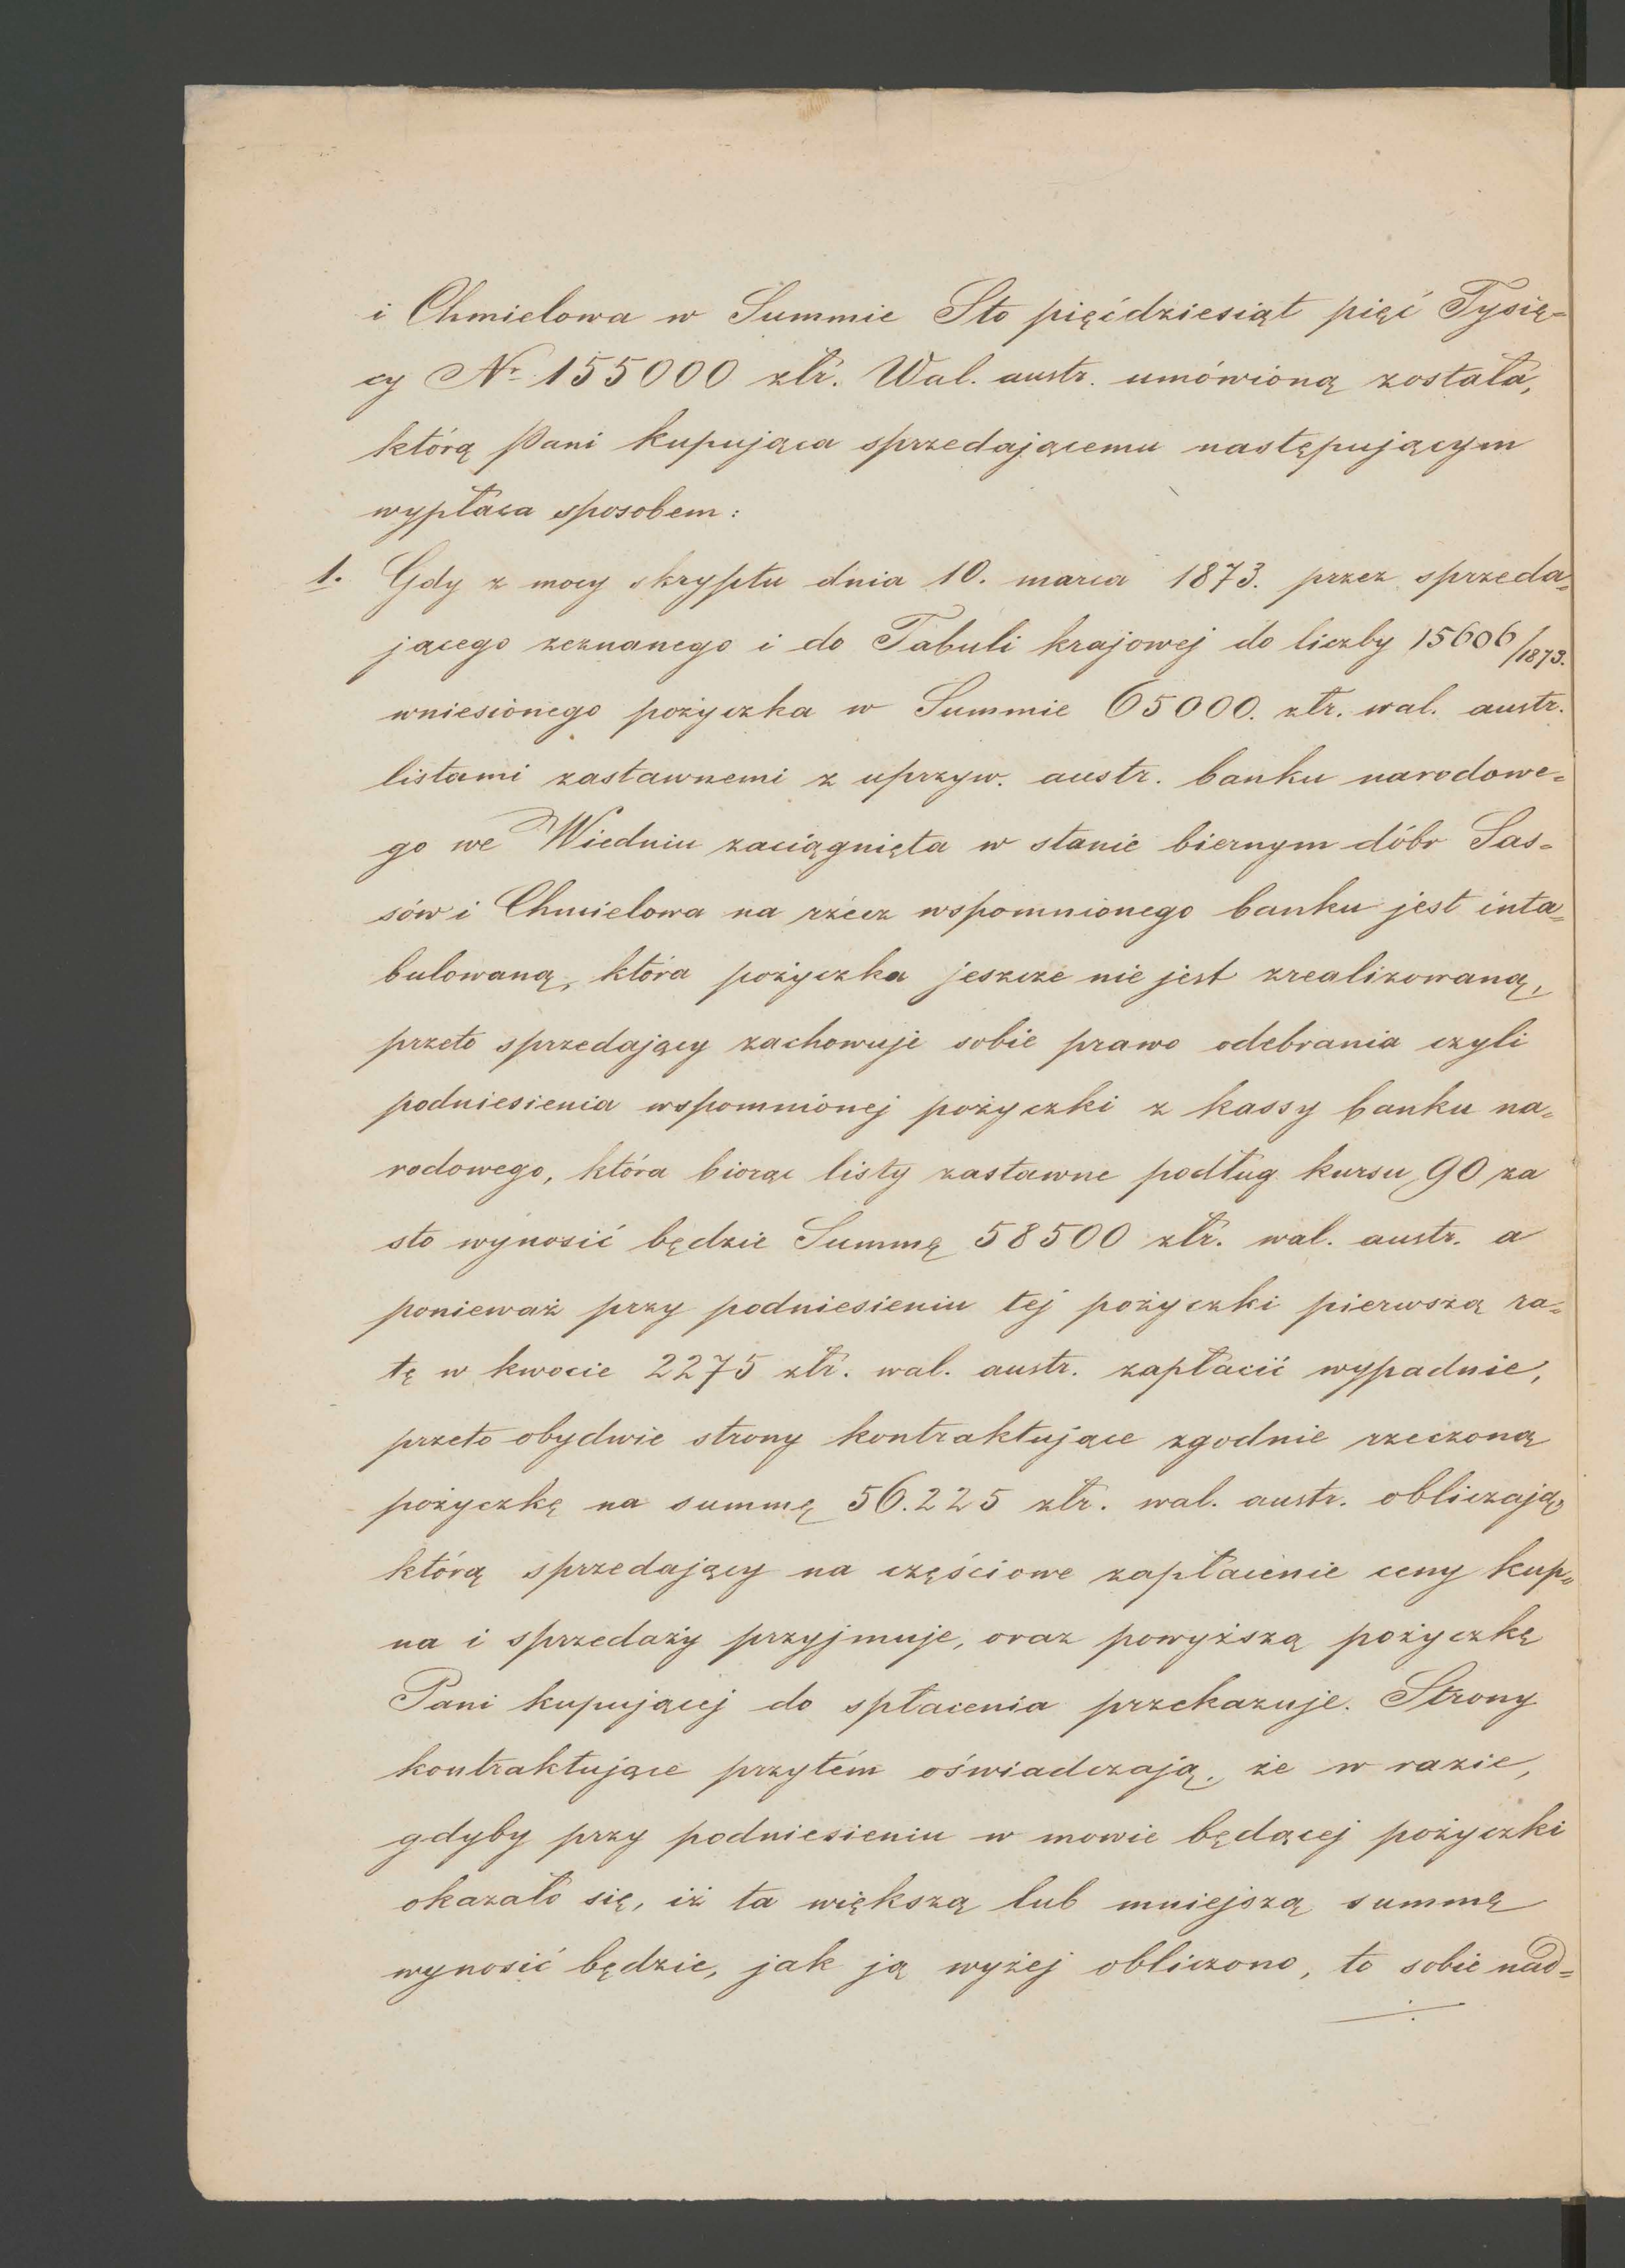 i Chmielowa w Summie Sto pięćdziesiąt pięć Tysię=
cy Nr 155000 złr. Wal. austr. umówioną została,
którą Pani kupująca sprzedającemu następującym
wypłaca sposobem:
1. Gdy z mocy skryptu dnia 10. marca 1873. przez sprzeda=
jącego zeznanego i do Tabuli krajowej do liczby 15606/1873.
wniesionego pożyczka w Summie 65000. złr. wal. austr.
listami zastawnemi z uprzyw. austr. banku narodowe=
go we Wiedniu zaciągnięta w stanie biernym dóbr Sas=
sów i Chmielowa na rzecz wspomnionego banku jest inta=
bulowaną, która pożyczka jeszcze nie jest zrealizowaną,
przeto sprzedający zachowuje sobie prawo odebrania czyli
podniesienia wspomnionej pożyczki z kassy banku na=
rodowego, która biorąc listy zastawne podług kursu 90 za
sto wynosić będzie Summę 58500 złr. wal. austr. a
ponieważ przy podniesieniu tej pożyczki pierwszą ra=
tę w kwocie 2275 złr. wal. austr. zapłacić wypadnie,
przeto obydwie strony kontraktujące zgodnie rzeczoną
pożyczkę na summę 56.225 złr. wal. austr. obliczają,
którą sprzedający na częściowe zapłacenie ceny kup=
na i sprzedaży przyjmuje, oraz powyższą pożyczkę
Pani kupującej do spłacenia przekazuje. Strony
kontraktujące przytém oświadczają, że w razie,
gdyby przy podniesieniu w mowie będącej pożyczki
okazało się, iż ta większą lub mniejszą summę
wynosić będzie, jak ją wyżej obliczono, to sobie nad=